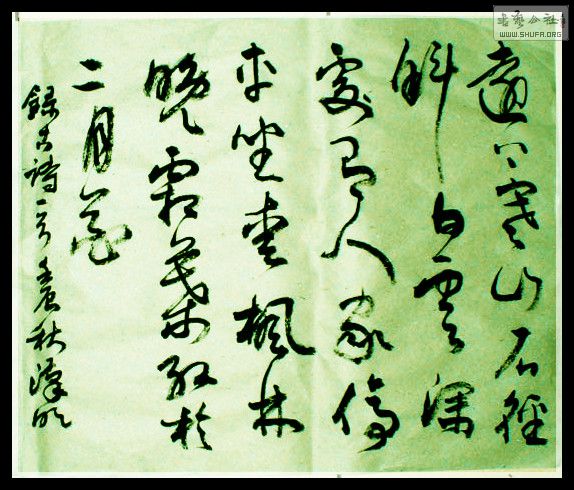 遠上寒山石徑
斜白雲深
處有人家停
車坐愛楓林
晚霜葉紅於
二月花
錄古詩一首壬辰秋
書藝公社
WWW.SHUFA.ORG